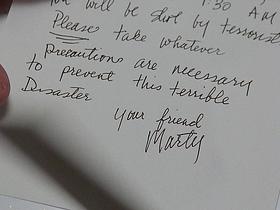 will be shot by terrorists
Please take whatever
precautions are necessary
to prevent this terrible
Disaster
your friend
Marty